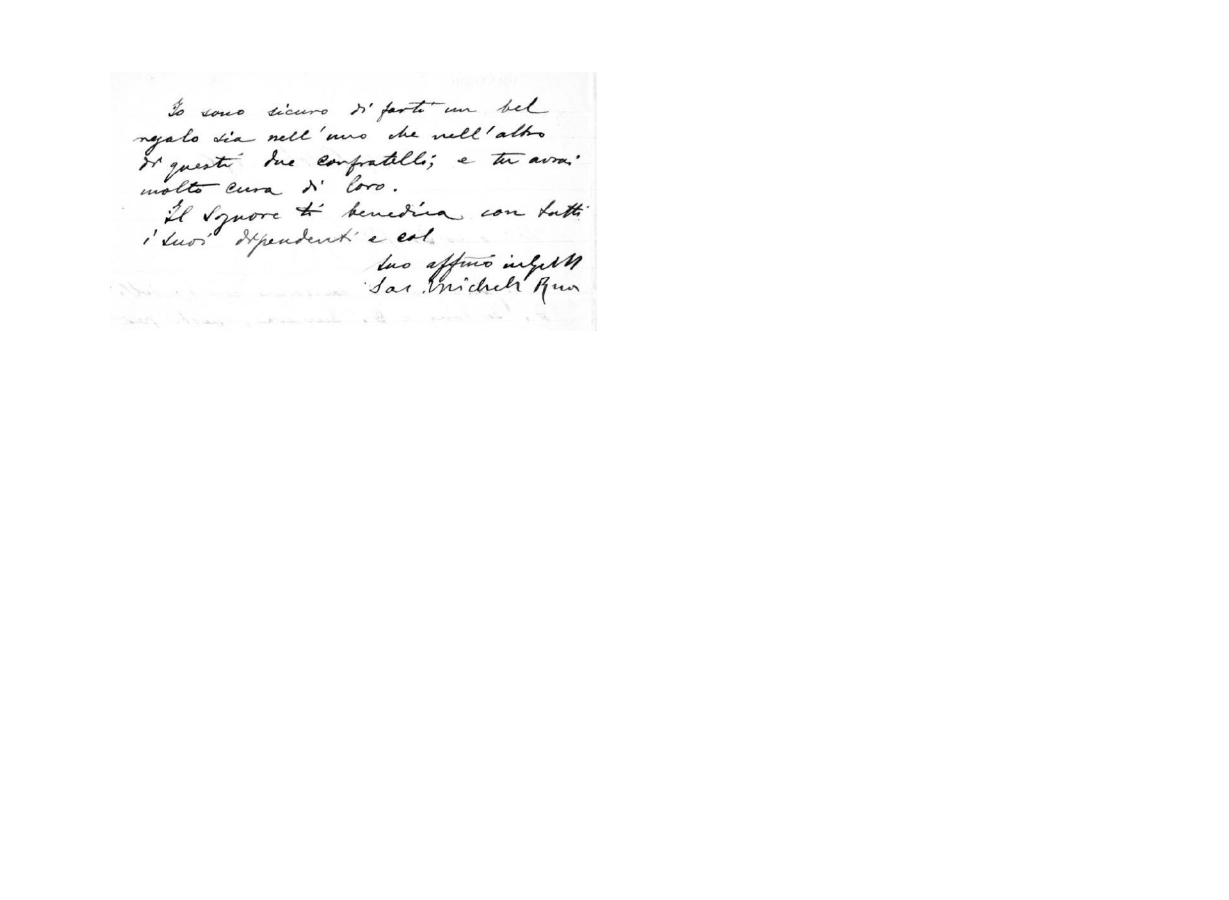 Io sono sicuro di farti un bel
regalo sia nell'uno che nell'altro
di questi due confratelli; e tu avrai
molto cura di loro.
Il Signore ti benedica con tutti
i tuoi dipendenti e col
tuo affmo in G. e M
Sac. Michele Rua